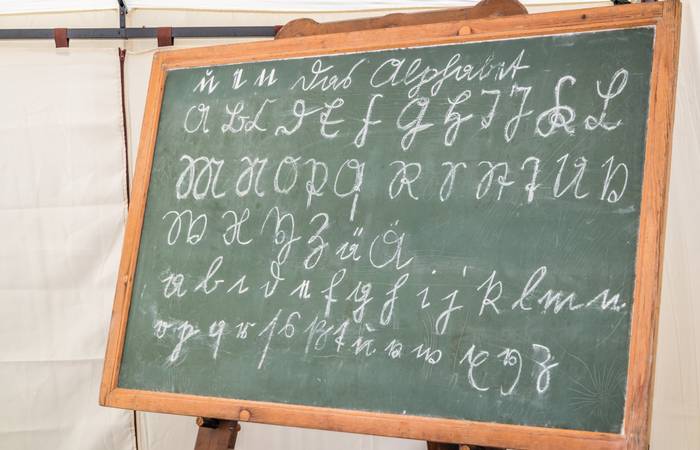 Das Alphabet
A B C D E F G H I J K L
M N O P Q R S St T U V
W X Y Z ä Ä
a b c d e f g h i j k l m n
o p q r ſ s ß t ŭ v w x y z